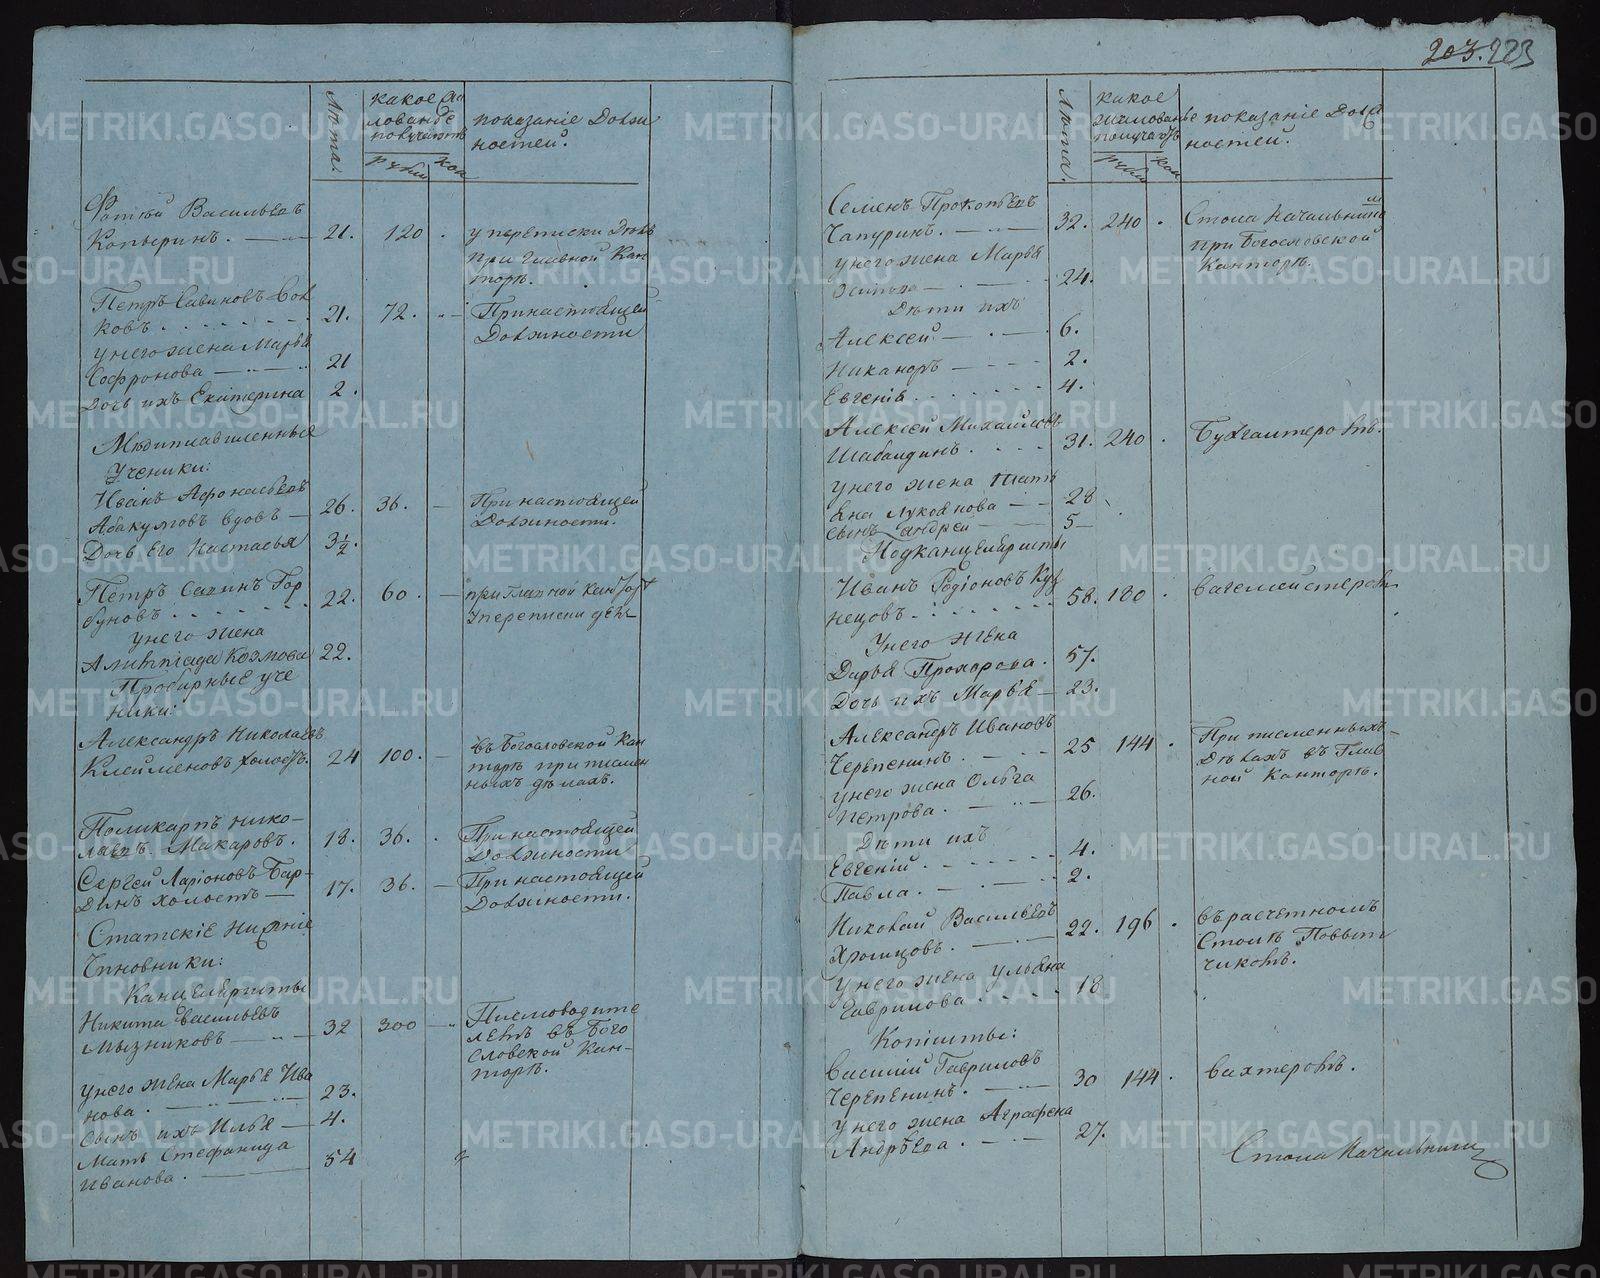 Лѣта.
какое жа
лованье
получаютъ
рубли коп
показанiе Долж
ностей.
Фотiй Васильевъ
Копыринъ. 21. 120 . у переписки Дѣлъ
при главной Кан
торѣ.
Петръ Савиновъ
ковъ 21. 72. При настоящей
Должности
у него жена Марья
Софронова 21
Дочь ихъ Екатерина 2.
Ученики:
Иванъ Афонасьевъ
Абакумовъ вдовъ 26. 36. При настоящей
Должности.
Дочь Его Настасья 3½.
Петръ Савинъ Гор
буновъ 22. 60. при Главной Канторѣ
у переписки дѣлъ
у него жена
Козмова 22.
Пробирные уче
ники:
Александръ Николаевъ
Клейменовъ холостъ. 24 100. въ Богословской Кан
торѣ при писмен
ныхъ дѣлахъ.
Поликарпъ Нико-
лаевъ Макаровъ. 18. 36. При настоящей
Должности
Сергей Ларiоновъ Бар-
динъ холостъ 17. 36. При настоящей
Должности.
Статскiе Нижнiе
Чиновники:
Канцеляристы
Никита Васильевъ
Мызниковъ 32 300 Писмоводите
лемъ въ Бого
словской Кан-
торѣ.
у него жена Марья Ива
нова. 23.
Сынъ ихъ Илья 4.
Мать Стефанида
Иванова. 54
203. 223
Лѣта.
какое
жалованье
получаютъ
рубли коп
показанiе Долж
ностей.
Семенъ Прокопьевъ
Чапуринъ. 32. 240 . Стола Начальникомъ
при Богословской
Канторѣ.
у него жена Марья
Осипова 24.
Дѣти ихъ
Алексей. 6.
Никаноръ 2.
Евгенiя 4.
Алексей Михайловъ
Шабалдинъ. 31. 240 . Бухгалтеромъ.
у него жена Тать
яна Лукоянова 28
сынъ Андрей 5
Подканцеляристы
Иванъ Родiоновъ Куз
нецовъ. 58. 180 .
У него жена
Дарья Прохорова. 57.
Дочь ихъ Марья 23.
Александръ Ивановъ
Черепенинъ. 25 144. При писменныхъ
Дѣлахъ въ Глав
ной Канторѣ.
у него жена Ольга
Петрова. 26.
Дѣти ихъ
Евгенiй 4.
Павла. 2.
Николай Васильевъ
Хромцовъ. 22. 196 . въ расчетномъ
Столѣ Повыт
чикомъ.
у него жена Ульяна
Гаврилова 18
Копiисты:
Василiй Гавриловъ
Черепенинъ. 30 144. вахтеромъ.
у него жена Аграфена
Андрѣева. 27.
Стола Начальник
METRIKI.GASO-URAL.RU